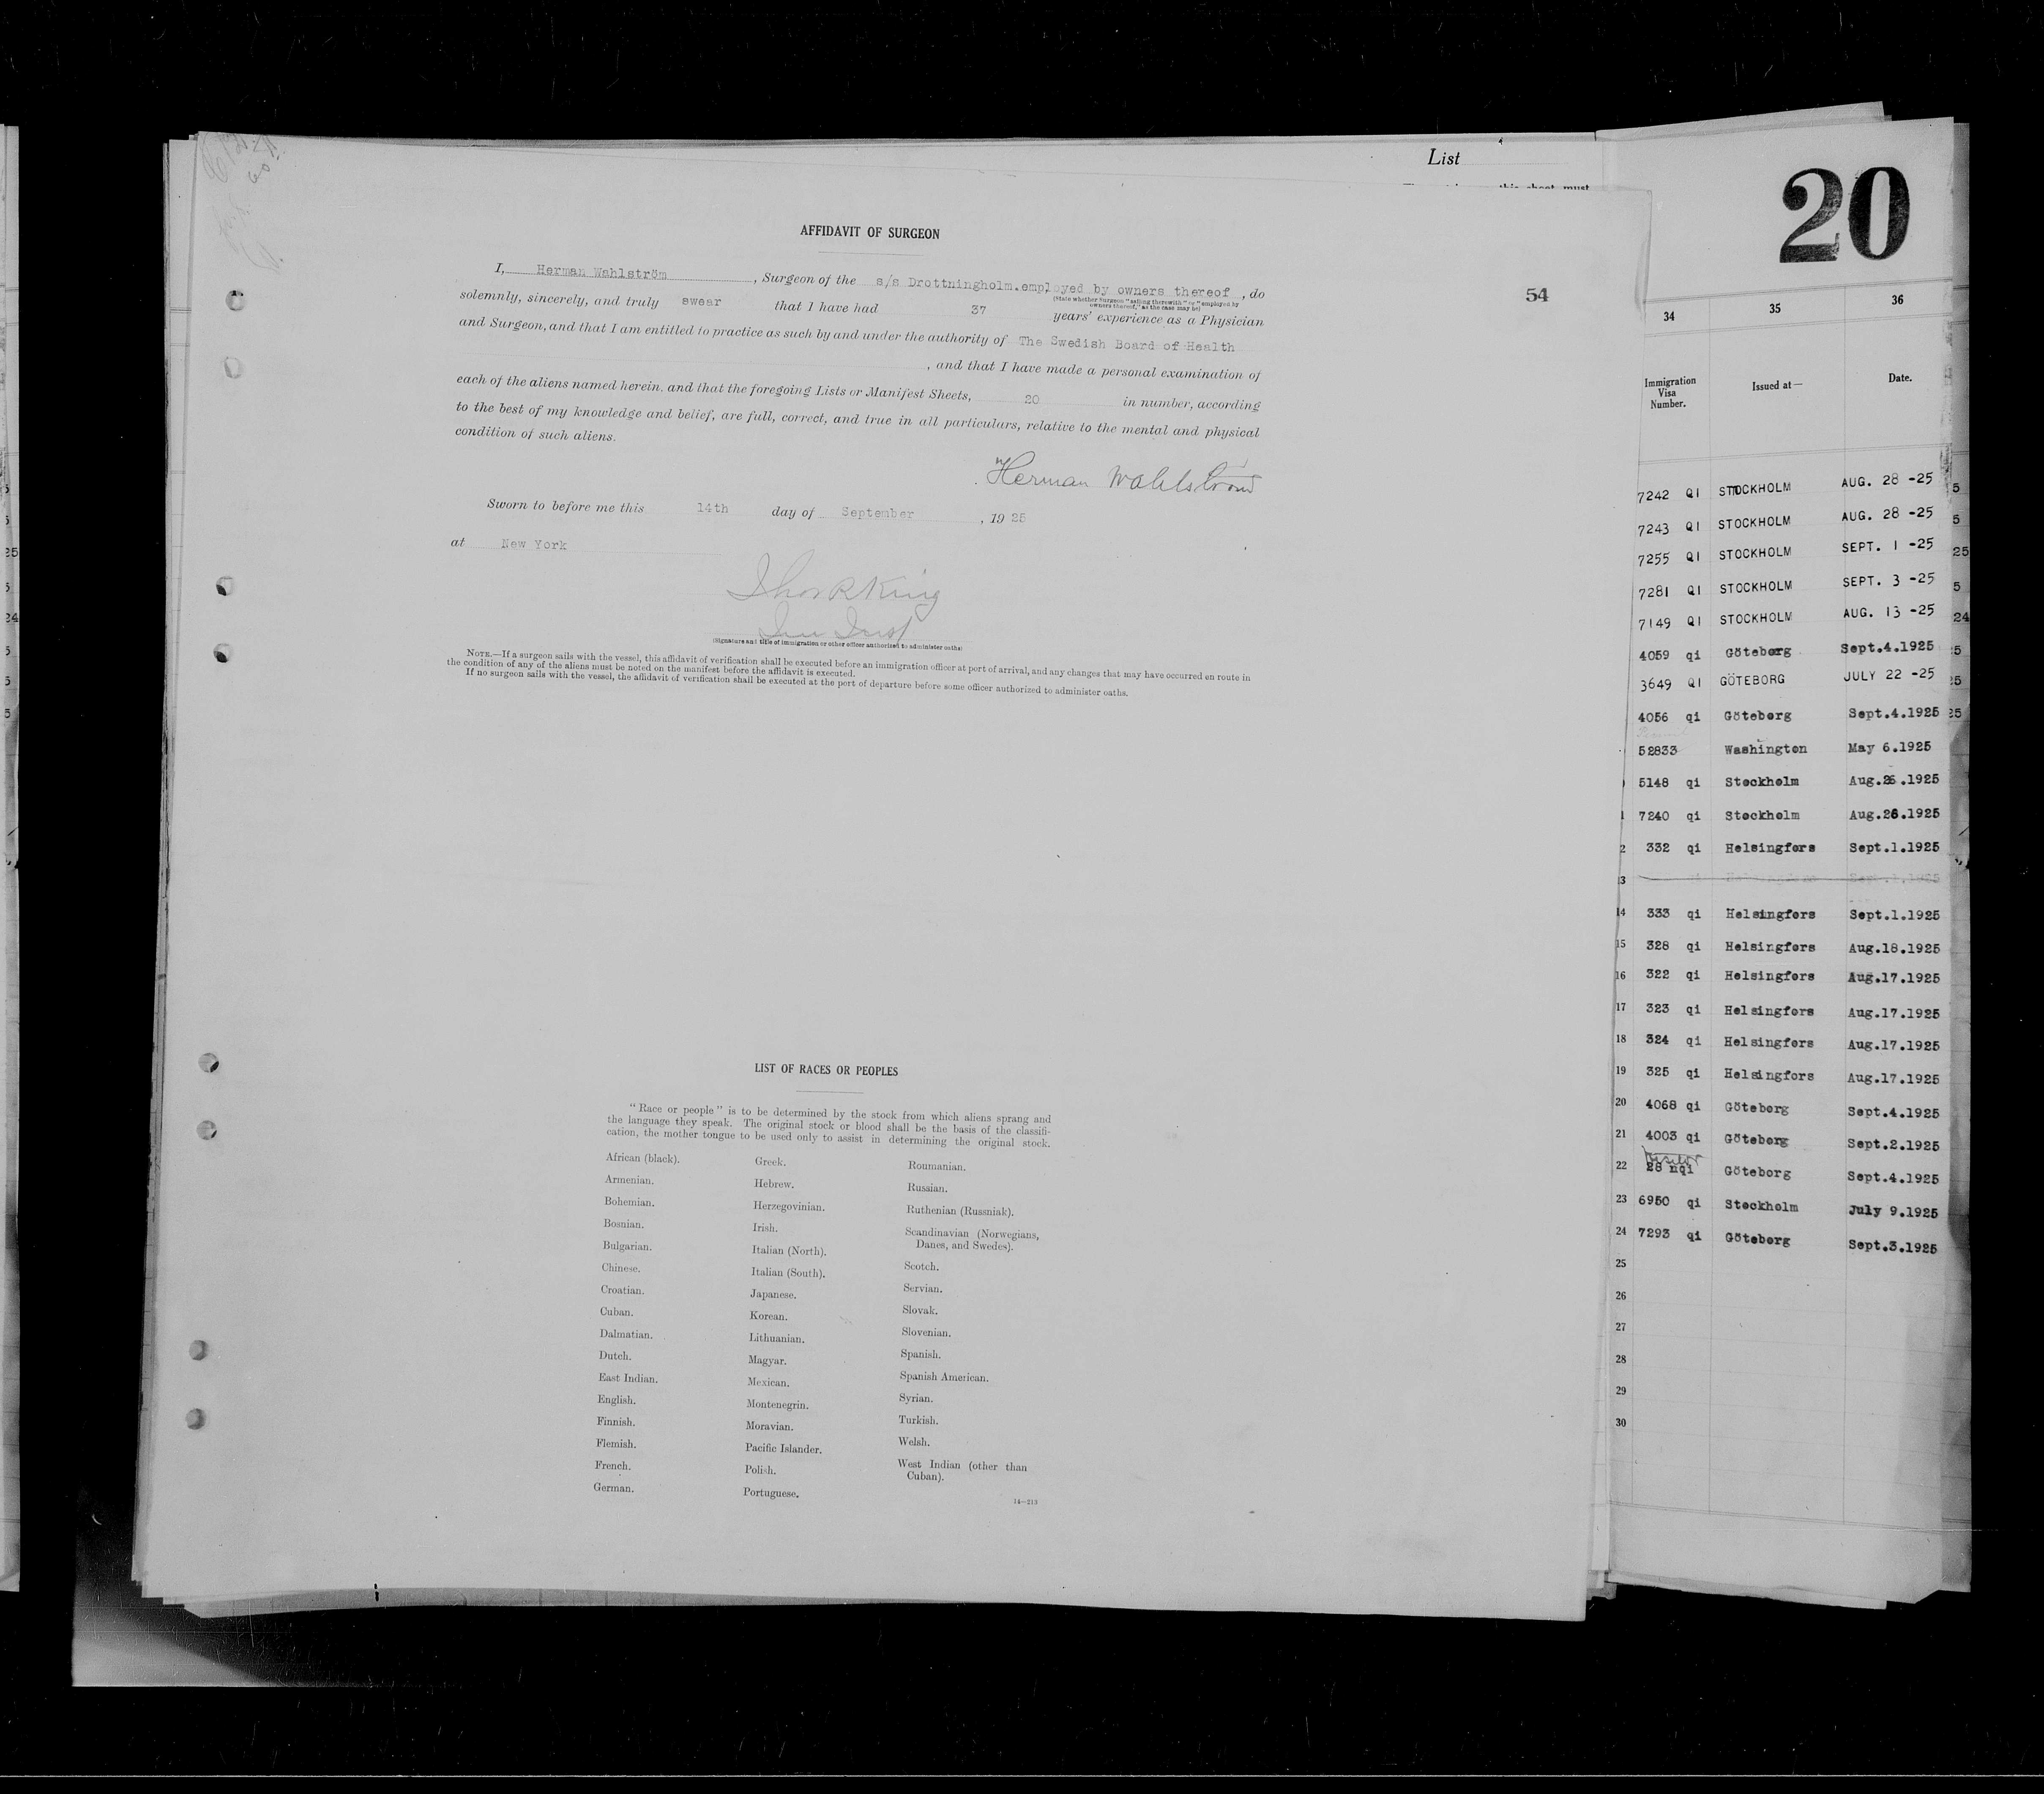 List
20
54
AFFIDAVIT OF SURGEON
I, Herman Wahlström, Surgeon of the s/s Drottningholm.employed by owners thereof, do
(State whether Surgeon "sailing therewith" or "employed by owners thereof," as the case may be)
solemnly, sincerely, and truly swear that I have had 37 years' experience as a Physician
and Surgeon, and that I am entitled to practice as such by and under the authority of The Swedish Board of Health
, and that I have made a personal examination of
each of the aliens named herein, and that the foregoing Lists or Manifest Sheets, 20 in number, according
to the best of my knowledge and belief, are full, correct, and true in all particulars, relative to the mental and physical
condition of such aliens.
Herman Wahlström
Sworn to before me this 14th day of September, 1925
at New York
Thos R King
(Signature and title of immigration or other officer authorized to administer oaths)
NOTE.—If a surgeon sails with the vessel, this affidavit of verification shall be executed before an immigration officer at port of arrival, and any changes that may have occurred en route in
the condition of any of the aliens must be noted on the manifest before the affidavit is executed.
If no surgeon sails with the vessel, the affidavit of verification shall be executed at the port of departure before some officer authorized to administer oaths.
LIST OF RACES OR PEOPLES
"Race or people" is to be determined by the stock from which aliens sprang and
the language they speak. The original stock or blood shall be the basis of the classifi-
cation, the mother tongue to be used only to assist in determining the original stock.
African (black).
Armenian.
Bohemian.
Bosnian.
Bulgarian.
Chinese.
Croatian.
Cuban.
Dalmatian.
Dutch.
East Indian.
English.
Finnish.
Flemish.
French.
German.
Greek.
Hebrew.
Herzegovinian.
Irish.
Italian (North).
Italian (South).
Japanese.
Korean.
Lithuanian.
Magyar.
Mexican.
Montenegrin.
Moravian.
Pacific Islander.
Polish.
Portuguese.
Roumanian.
Russian.
Ruthenian (Russniak).
Scandinavian (Norwegians,
Danes, and Swedes).
Scotch.
Servian.
Slovak.
Slovenian.
Spanish.
Spanish American.
Syrian.
Turkish.
Welsh.
West Indian (other than
Cuban).
14—213
34 35 36
Immigration Visa Number. Issued at— Date.
7242 QI STOCKHOLM AUG. 28 -25
7243 QI STOCKHOLM AUG. 28 -25
7255 QI STOCKHOLM SEPT. 1 -25
7281 QI STOCKHOLM SEPT. 3 -25
7149 QI STOCKHOLM AUG. 13 -25
4059 qi Göteborg Sept.4.1925
3649 QI GÖTEBORG JULY 22 -25
4056 qi Göteborg Sept.4.1925
52833 Washington May 6.1925
5148 qi Stockholm Aug.26.1925
7240 qi Stockholm Aug.26.1925
2 332 qi Helsingfors Sept.1.1925
13
14 333 qi Helsingfors Sept.1.1925
15 328 qi Helsingfors Aug.18.1925
16 322 qi Helsingfors Aug.17.1925
17 323 qi Helsingfors Aug.17.1925
18 324 qi Helsingfors Aug.17.1925
19 325 qi Helsingfors Aug.17.1925
20 4068 qi Göteborg Sept.4.1925
21 4003 qi Göteborg Sept.2.1925
visitor
22 28 nqi Göteborg Sept.4.1925
23 6950 qi Stockholm July 9.1925
24 7293 qi Göteborg Sept.3.1925
25
26
27
28
29
30